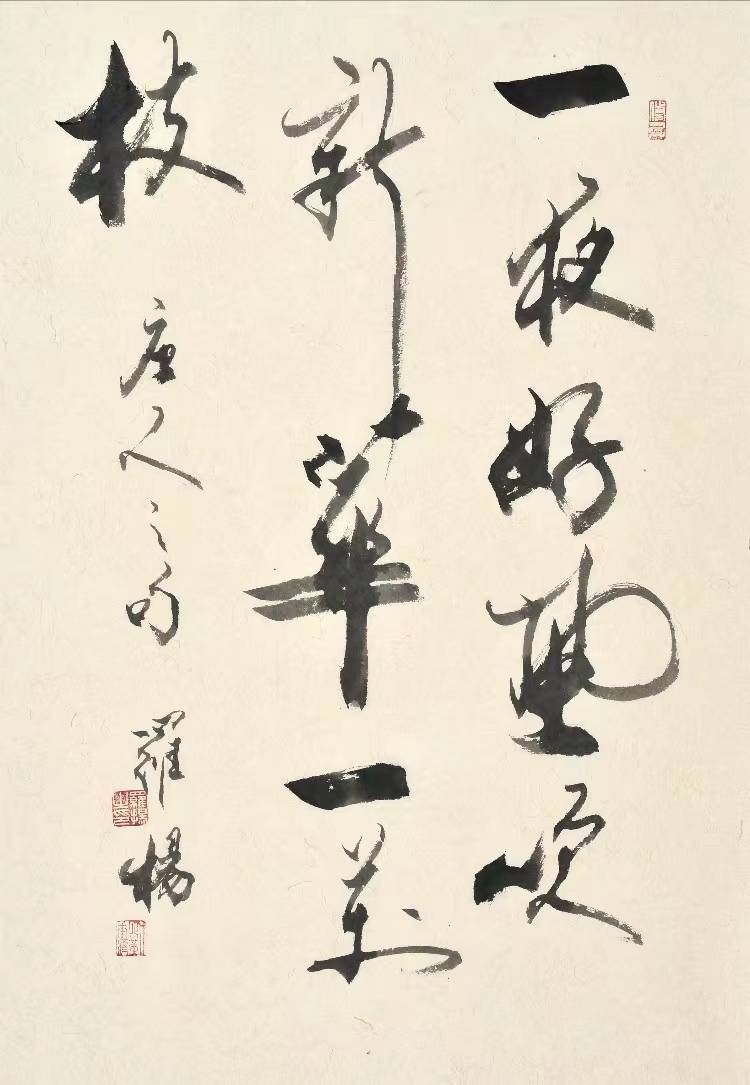 一夜好風吹
新華一萬
枝 唐人之句 羅楊